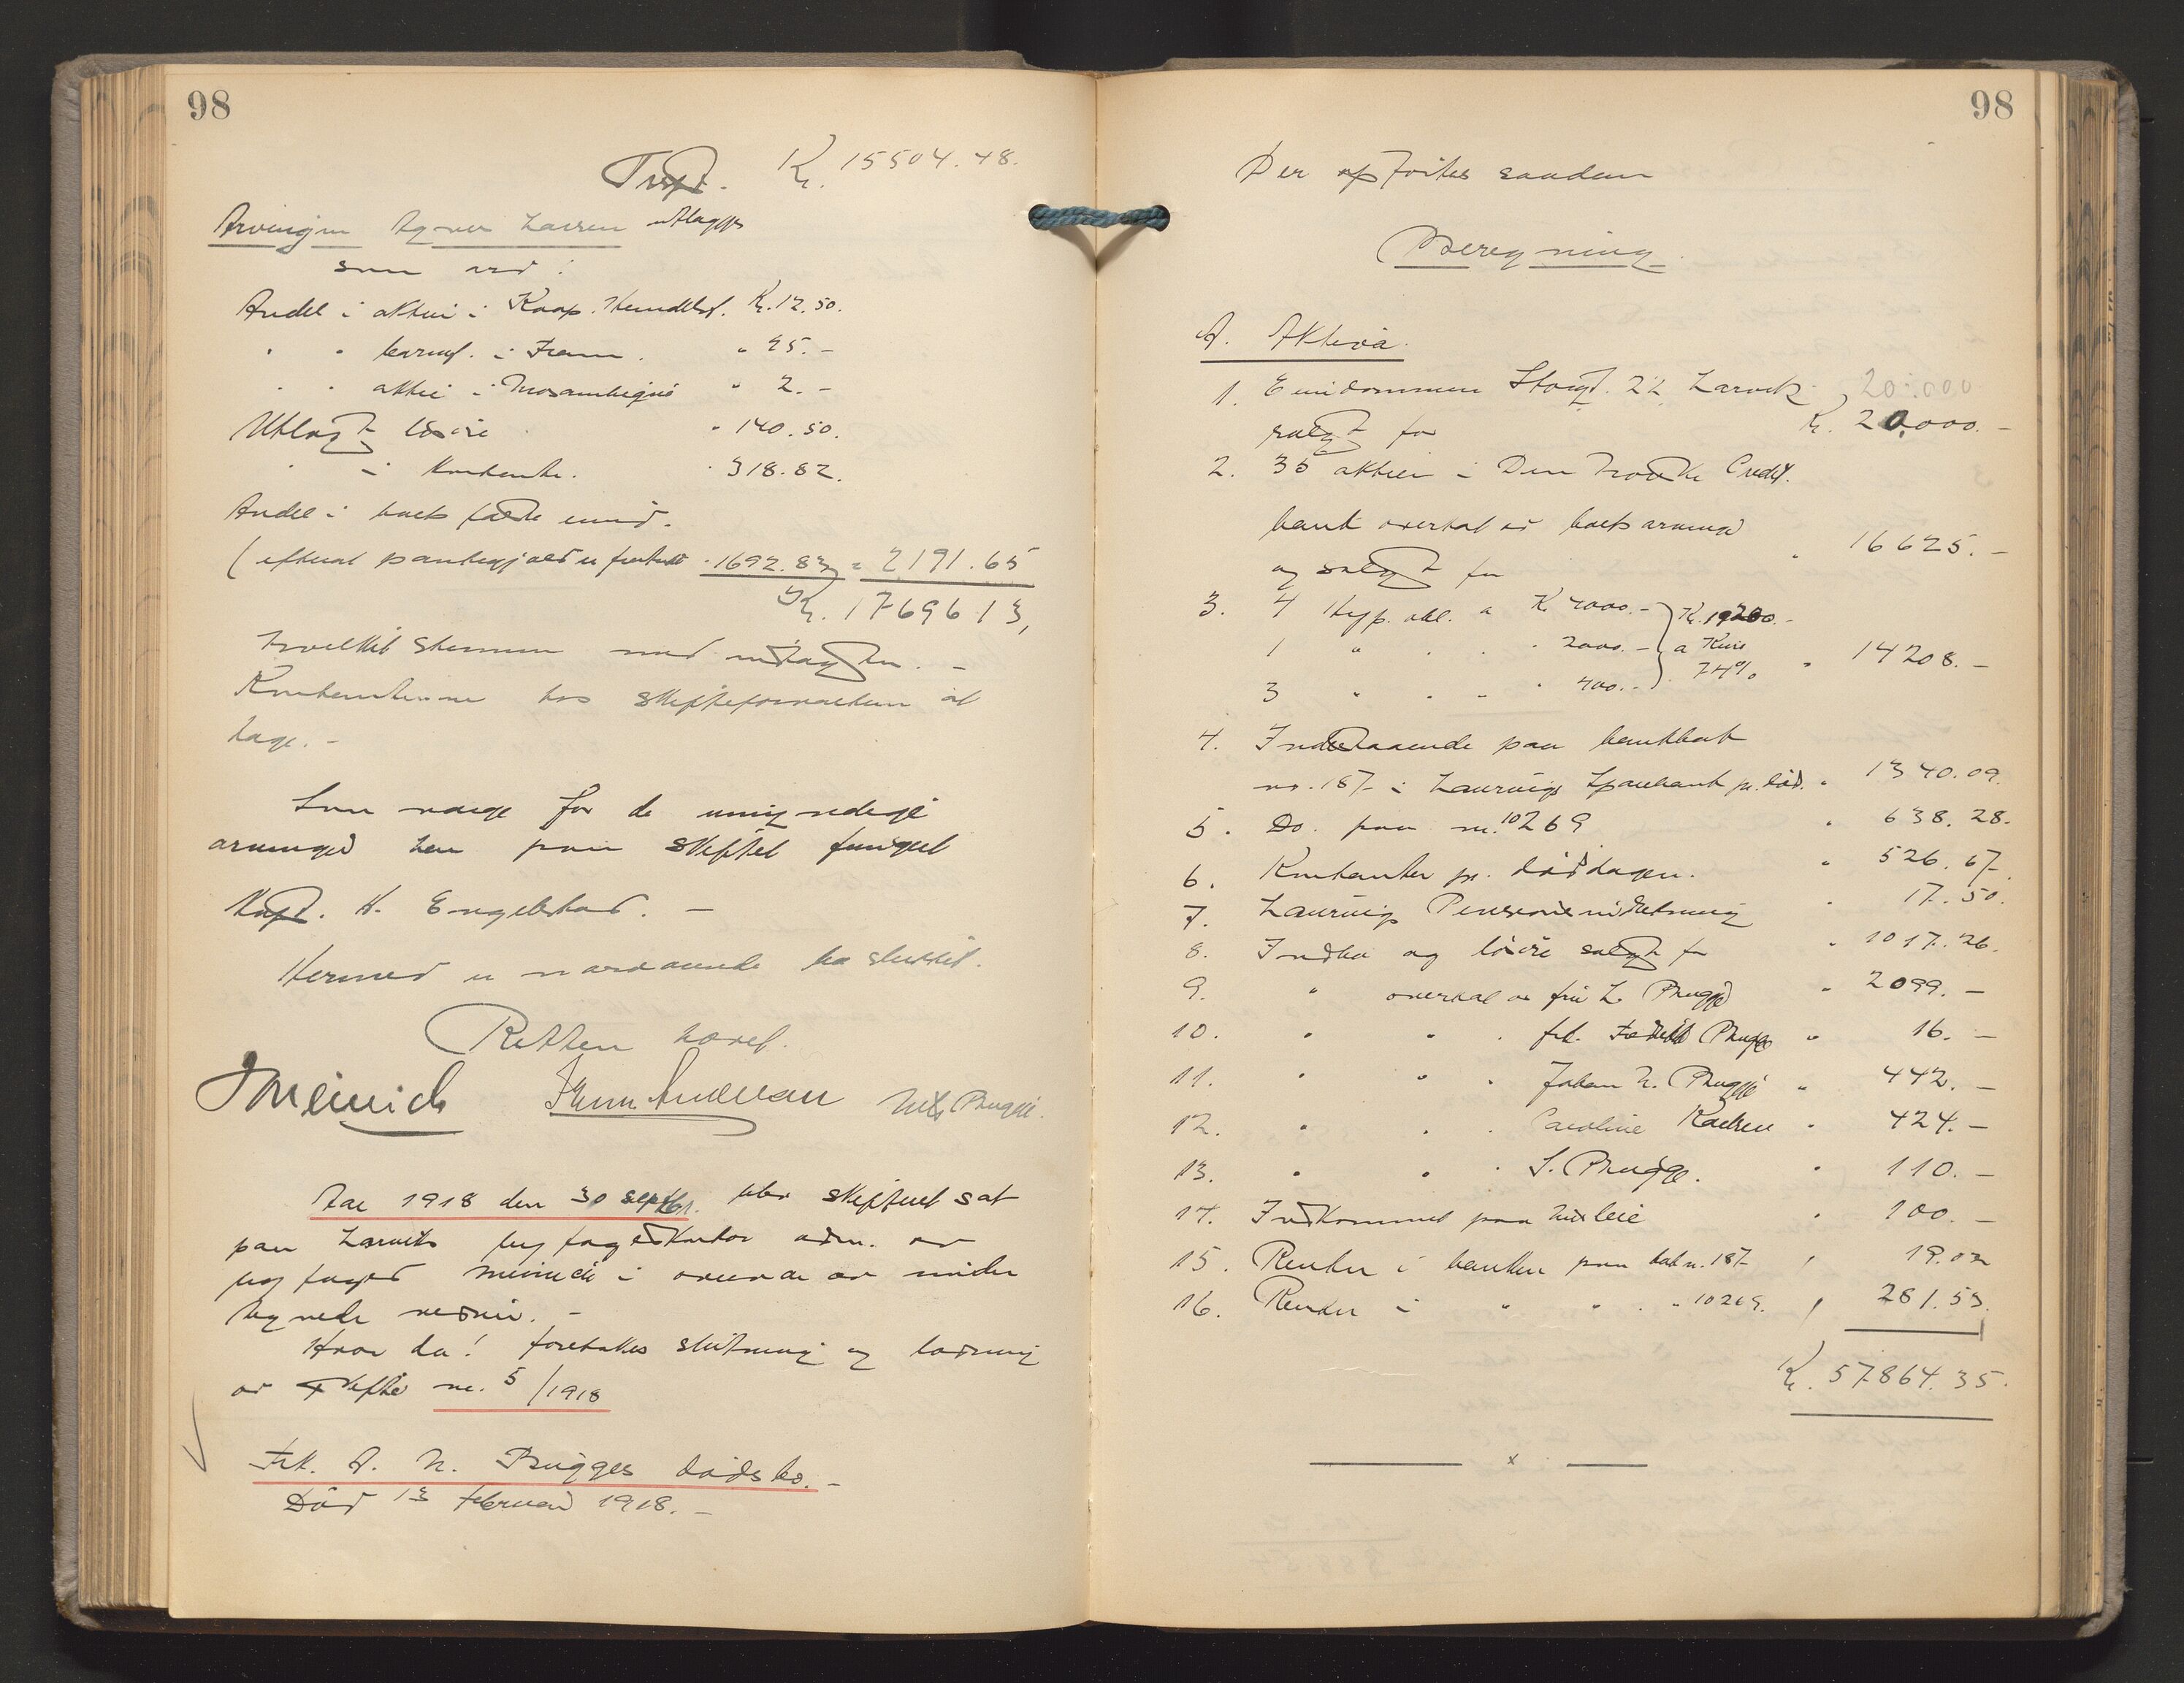 98
Trspt. Kr. 15504.48.
Arvingen Agnes Larsen utlægges
som arv:
Andel i aktier i Koop. Handelsf. Kr. 12.50.
" " " i Fram. " 25.-
" " aktie i Mosambique " 2.-
Utlagt løsøre " 140.50.
" i kontanter. " 318.82.
Andel i boets faste eiend.
(efterat pantegjæld er fratrukket " 1692.83 = 2191.65
Kr. 17696.13,
hvilket stemmer med indtægten. -
Kontanterne hos skifteforvalteren at
hæve. -
Som værge for de umyndige
arvinger har paa skiftet fungert
Kapt. H. Engelstad. -
Hermed er nærværende bo sluttet.
Retten hævet.
Meinich
Aar 1918 den 30 septbr. blev skifteret sat
paa Larviks byfogedkontor adm. av
byfoged Meinich i overvær av under
tegnede vidner. -
Hvor da! foretokes slutning og lodning
av skifte nr. 5/1918
Frk. A. N. Brügges dødsbo. -
Død 13 februar 1918. -
98
Der opførtes saadan
Beregning.
A. Aktiva.
1. Eiendommen Storgt. 22 Larvik 20.000
solgt for Kr. 20.000.-
2. 35 aktier i Den norske Credit.
bank overtat av boets arvinger
og solgt for " 16625.-
3. 4 Hyp. obl. a Kr. 4000.- Kr. 19200.-
1 " " " " 2000.- a Kurs
3 " " " " 400.- 74% " 14208.-
4. Indestaaende paa bankbok
no. 187 i Laurvigs Sparebank pr. død. " 1340.09.
5. Do. paa nr. 10269 " 638.28.
6. Kontanter pr. dødsdagen. " 526.67.
7. Laurvigs Pensionsindretning " 17.50.
8. Indbo og løsøre solgt for " 1017.26.
9. " overtat av fru L. Brügge " 2099.-
10. " " " frk. Fredrikke Brügge " 16.-
11. " " " Johan N. Brügge " 442.-
12. " " " Caroline " 424.-
13. " " " S. Brügge. " 110.-
14. Indkommet paa husleie " 100.-
15. Renter i banken paa bok nr. 187 " 19.02
16. Renter i " " " " 10269. " 281.53.
Kr. 57864.35.
x